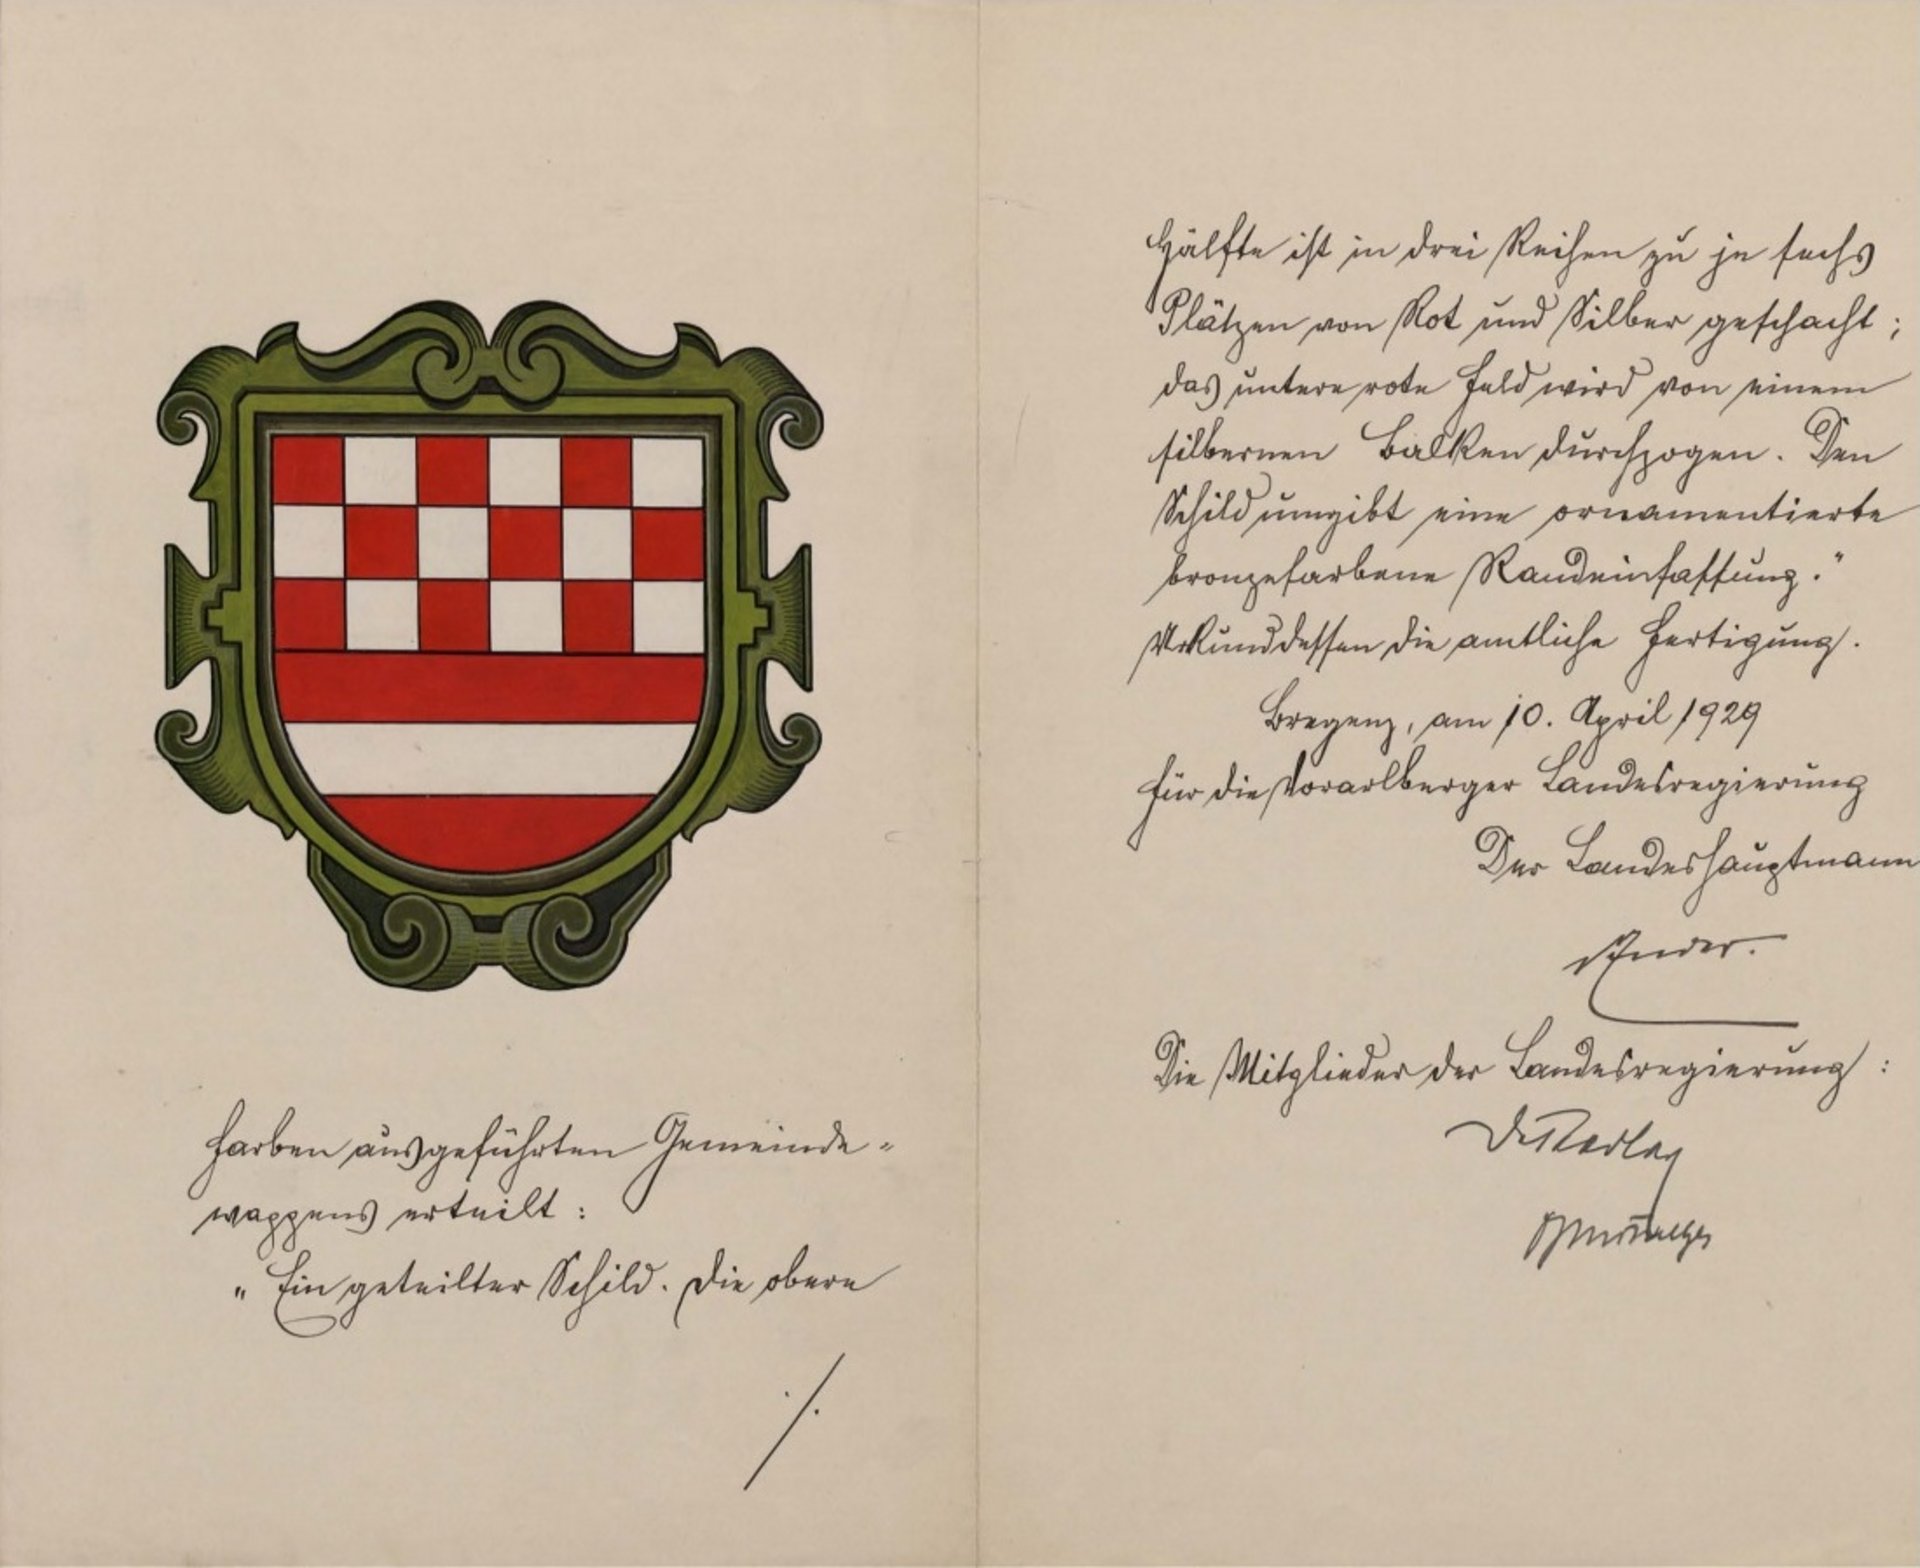 Farben ausgeführten Gemeinde=
wappens erteilt:
„Ein geteilter Schild. Die obere
./.
Hälfte ist in drei Reihen zu je sechs
Plätzen von Rot und Silber geschacht;
das untere rote Feld wird von einem
silbernen Balken durchzogen. Den
Schild umgibt eine ornamentierte
bronzefarbene Randeinfassung."
Urkunddessen die amtliche Fertigung.
Bregenz, am 10. April 1929
Für die Vorarlberger Landesregierung
Der Landeshauptmann
Ender.
Die Mitglieder der Landesregierung: